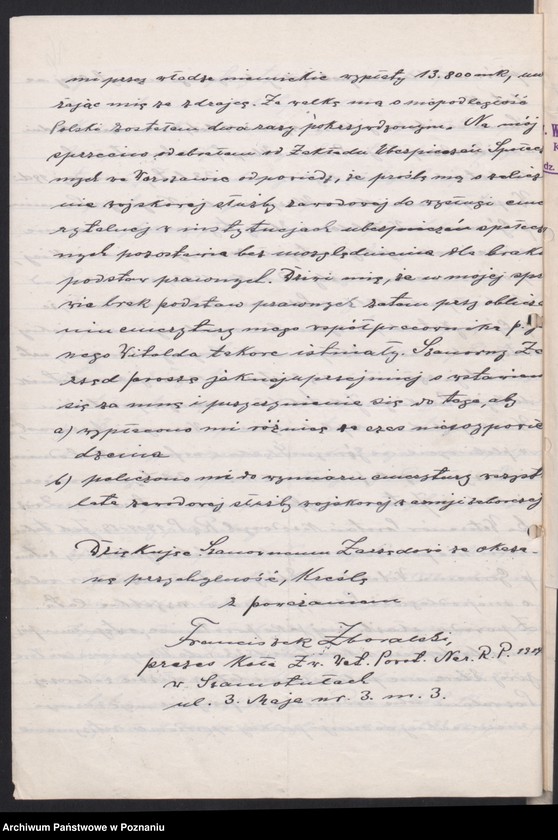 mi przez władze niemieckie wypłaty 13.800 mk, uwa
żając mię za zdrajcę. Za walkę mą o niepodległość
Polski zostałem dwa razy pokrzywdzonym. Na mój
sprzeciw odebrałem od Zakładu Ubezpieczeń Społecz
nych w Warszawie odpowiedź, że prośbę mą o zalicze
nie wojskowej służby zawodowej do wysługi eme
rytalnej w instytucjach ubezpieczeń społecz
nych pozostawia bez uwzględnienia dla braku
podstaw prawnych. Dziwi mię, że w mojej spra
wie brak podstaw prawnych zatem przy oblicze
niu emerytury mego współpracownika p.
nego Witolda takowe istniały. Szanowny Za
rząd proszę jaknajuprzejmiej o wstawien
się za mną i przyczynienie się do tego, aby
a) wypłacono mi różnicę za czas
dzenia
b) policzono mi do wymiaru emerytury wszyst
lata zawodowej służby wojskowej w armji zaborczej
Dziękując Szanownemu Zarządowi za okaza-
ną przychylność, kreślę
z poważaniem
Franciszek Zboralski,
prezes Koła Zw. Wet. Powst. Nar. R. P. 1914
w Szamotułach
ul. 3. Maja nr. 3. m. 3.
Archiwum Państwowe w Poznaniu